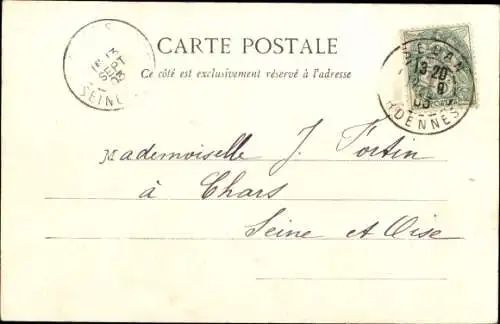 CARTE POSTALE
Ce côté est exclusivement réservé à l'adresse
SEPT
03
SEINE
13-20
9
03
ARDENNES
Mademoiselle J. Fortin
à Chars
Seine et Oise